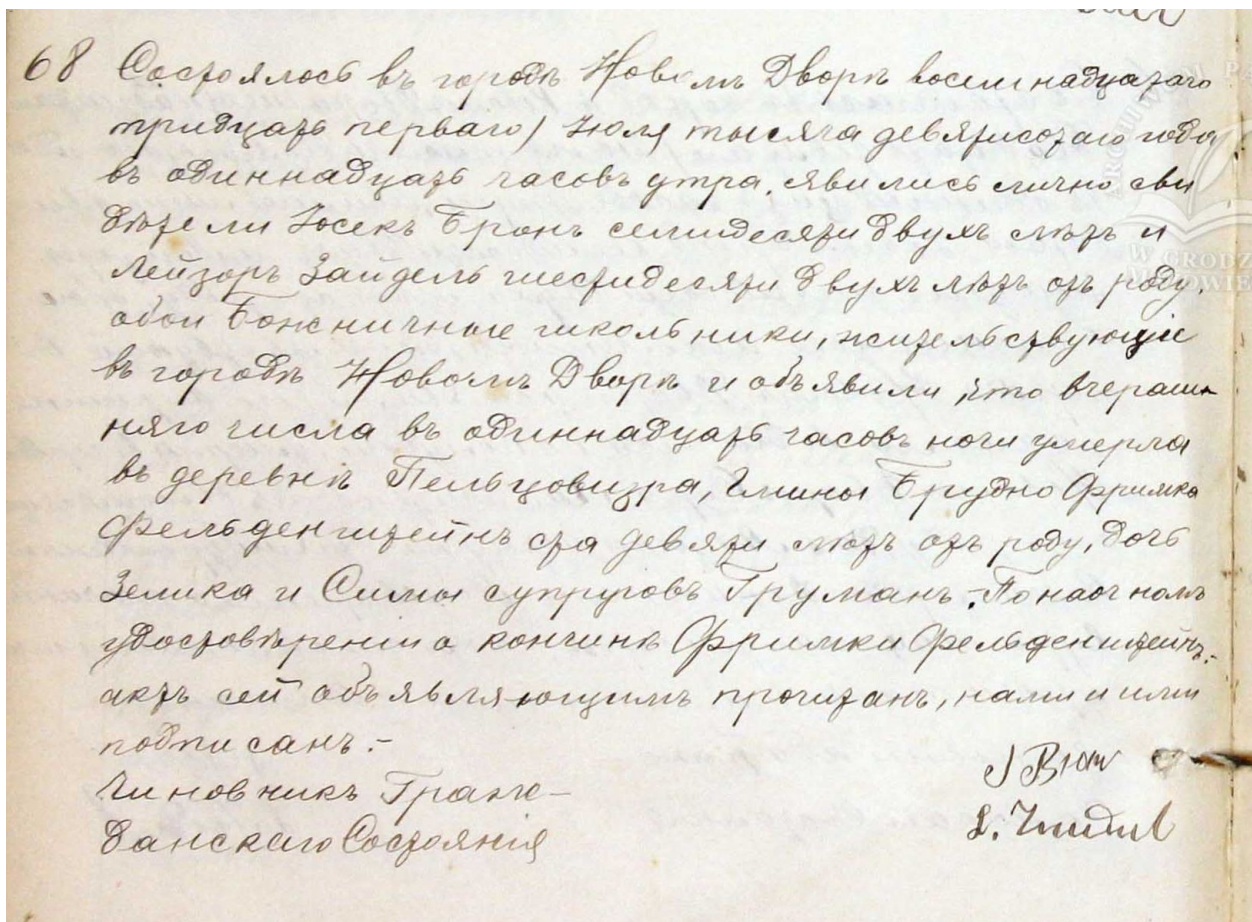 68 Состоялось въ городѣ Новомъ Дворѣ восемнадцатаго
тридцать перваго) Іюля тысяча девятисотаго года
въ одиннадцать часовъ утра. явились лично сви
дѣтели Іосекъ Бронъ семидесяти двухъ лѣтъ и
Лейзоръ Зайдель шестидесяти двухъ лѣтъ отъ роду.
обои Божничные школьники, жительствующіе
въ городѣ Новомъ Дворѣ и объявили, что вчераш-
няго числа въ одиннадцать часовъ ночи умерла
въ деревнѣ Пельцовизра, Гмины Брудно Фримка
Фельденштейнъ ста девяти лѣтъ отъ роду, дочь
Зелика и Симы супруговъ Груманъ. По наочномъ
удостовѣреніи о кончинѣ Фримки Фельденштейнъ.-
актъ сей объявляющимъ прочитанъ, нами и ими
подписанъ.-
Чиновникъ Граж-
данскаго Состоянія